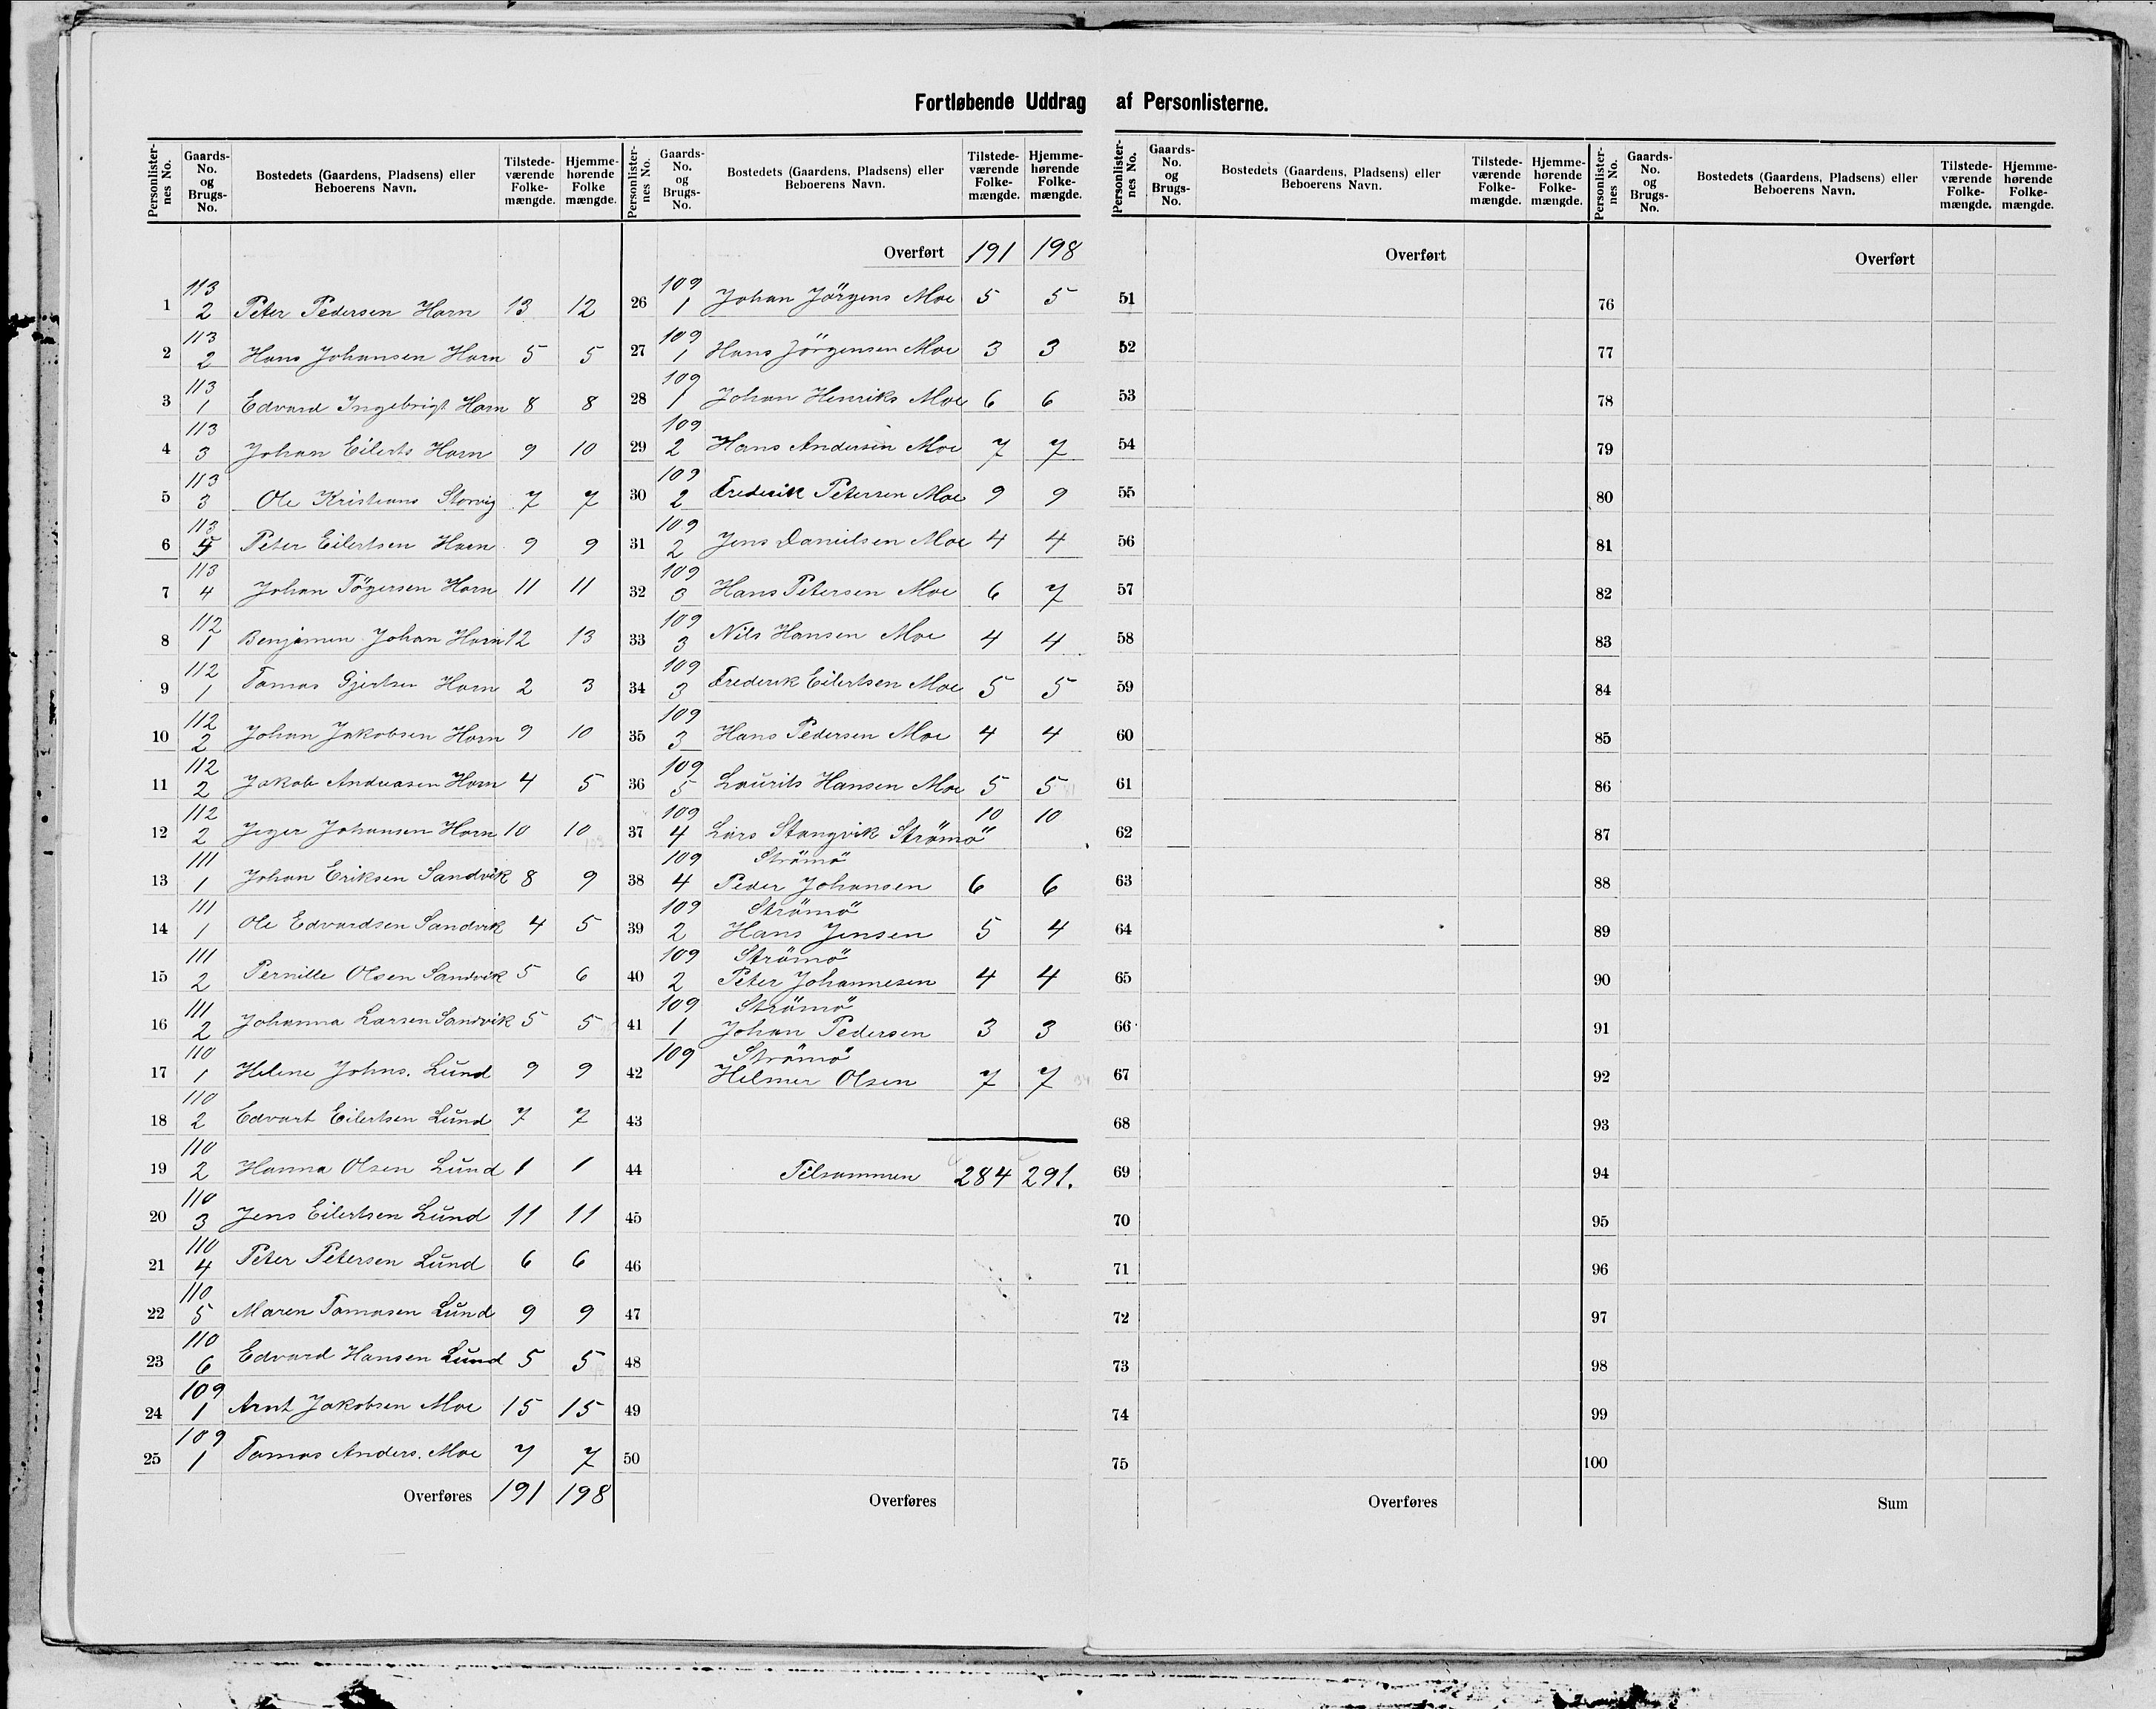 Fortløbende Uddrag af Personlisterne.
Personlisternes No. Gaards-No. og Brugs-No. Bostedets (Gaardens, Pladsens) eller Beboerens Navn. Tilstedeværende Folkemængde. Hjemmehørende Folkemængde.
1 113 2 Peter Pedersen Horn 13 12
2 113 2 Hans Johansen Horn 5 5
3 113 1 Edvard Ingebrigt Horn 8 8
4 113 3 Johan Eilerts Horn 9 10
5 113 3 Ole Kristians Storvig 7 7
6 113 Peter Eilertsen Horn 9 9
7 113 4 Johan Tögersen Horn 11 11
8 112 1 Benjamin Johan Horn 12 13
9 112 1 Tomas Gjertsen Horn 2 3
10 112 2 Johan Jakobsen Horn 9 10
11 112 2 Jakob Andreasen Horn 4 5
12 112 2 Jeger Johansen Horn 10 10
13 111 1 Johan Eriksen Sandvik 8 9
14 111 1 Ole Edvardsen Sandvik 4 5
15 111 2 Pernille Olsen Sandvik 5 6
16 111 2 Johanna Larsen Sandvik 5 5
17 110 1 Helene Johns. Lund 9 9
18 110 2 Edvart Eilertsen Lund 7 7
19 110 2 Hanna Olsen Lund 1 1
20 110 3 Jens Eilertsen Lund 11 11
21 110 4 Peter Petersen Lund 6 6
22 110 5 Maren Tomasen Lund 9 9
23 110 6 Edvard Hansen Lund 5 5
24 109 1 Arnt Jakobsen Moe 15 15
25 109 1 Tomas Anders. Moe 7 7
Overføres 191 198
Personlisternes No. Gaards-No. og Brugs-No. Bostedets (Gaardens, Pladsens) eller Beboerens Navn. Tilstedeværende Folkemængde. Hjemmehørende Folkemængde.
Overført 191 198
26 109 1 Johan Jörgens Moe 5 5
27 109 1 Hans Jörgensen Moe 3 3
28 109 1 Johan Henriks Moe 6 6
29 109 2 Hans Andersen Moe 7 7
30 109 2 Frederik Petersen Moe 9 9
31 109 2 Jens Danielsen Moe 4 4
32 109 3 Hans Petersen Moe 6 7
33 109 3 Nils Hansen Moe 4 4
34 109 3 Frederik Eilertsen Moe 5 5
35 109 3 Hans Pedersen Moe 4 4
36 109 5 Laurits Hansen Moe 5 5
37 109 4 Lars Stangvik Strömö 10 10
38 109 4 Strömö Peder Johansen 6 6
39 109 2 Strömö Hans Jensen 5 4
40 109 2 Strömö Peter Johannesen 4 4
41 109 1 Strömö Johan Pedersen 3 3
42 109 Strömö Helmer Olsen 7 7
43
44 Tilsammen 284 291.
45
46
47
48
49
50
Overføres
Personlisternes No. Gaards-No. og Brugs-No. Bostedets (Gaardens, Pladsens) eller Beboerens Navn. Tilstedeværende Folkemængde. Hjemmehørende Folkemængde.
Overført
51
52
53
54
55
56
57
58
59
60
61
62
63
64
65
66
67
68
69
70
71
72
73
74
75
Overføres
Personlisternes No. Gaards-No. og Brugs-No. Bostedets (Gaardens, Pladsens) eller Beboerens Navn. Tilstedeværende Folkemængde. Hjemmehørende Folkemængde.
Overført
76
77
78
79
80
81
82
83
84
85
86
87
88
89
90
91
92
93
94
95
96
97
98
99
100
Sum